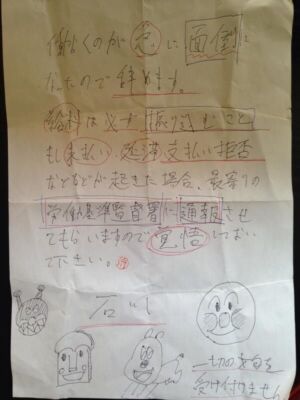 働くのが急に面倒に
なったので辞めます。
給料は必ず振り込むこと
もし未払い・延滞・支払い拒否
などなどが起きた場合、最寄りの
労働基準監督署に通報させ
てもらいますので覚悟しておい
て下さい。
石川
一切の文句を
受け付けません